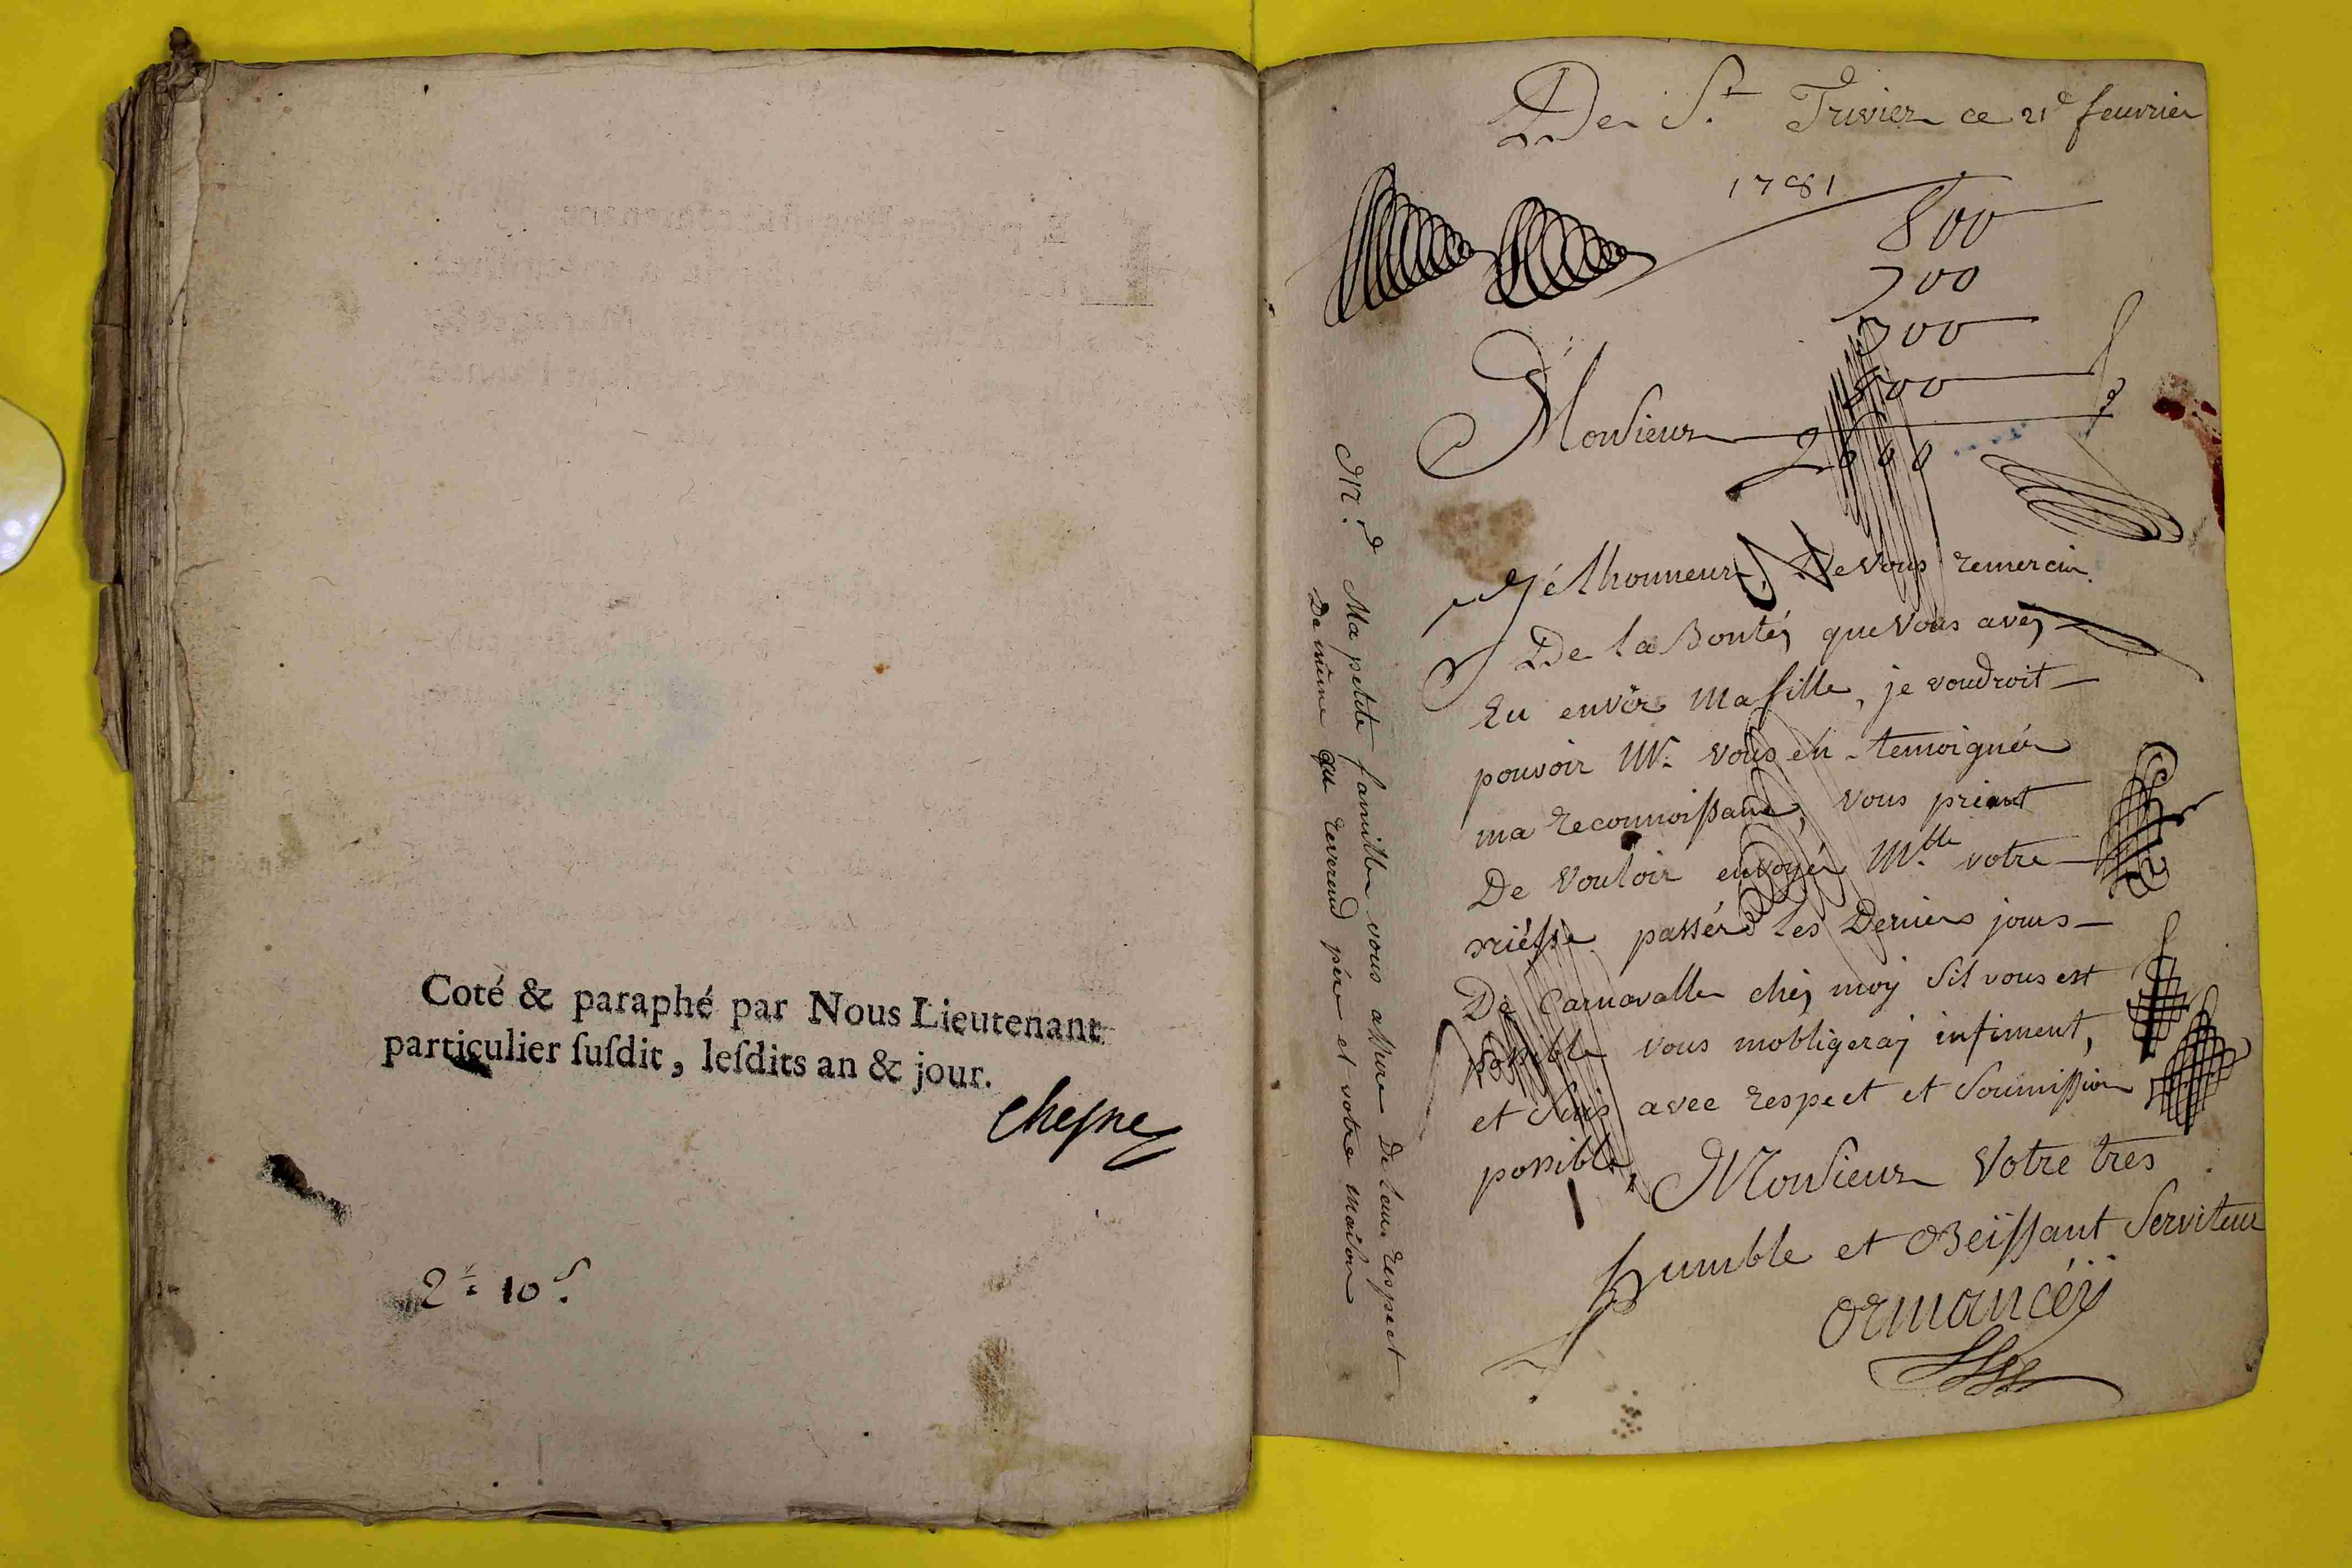 Coté & paraphé par Nous Lieutenant
particulier ſuſdit, leſdits an & jour.
Chesne
2# 10s
De St Trivier ce 21e feuvrier
1781
800
700
300
800
2600
Monsieur
J'é l'honneur De vous remercier
De la Bonté, que vous avéz
Eu envër ma fille, je voudroit
pouvoir Mr. vous en temoignér
ma reconnoissance, vous priant
De vouloir envoyér Mlle votre
niésse passér les Derniers jours
De Carnavalle chéz moy s'il vous est
possible vous mobligeray infiment,
et suis avec respect et soumission
possible,
Monsieur Votre tres
humble et OBeissant Serviteur
ormancéÿ
Mr. Ma petite famille vous assure De leur respect
De même au reverend père et votre maison